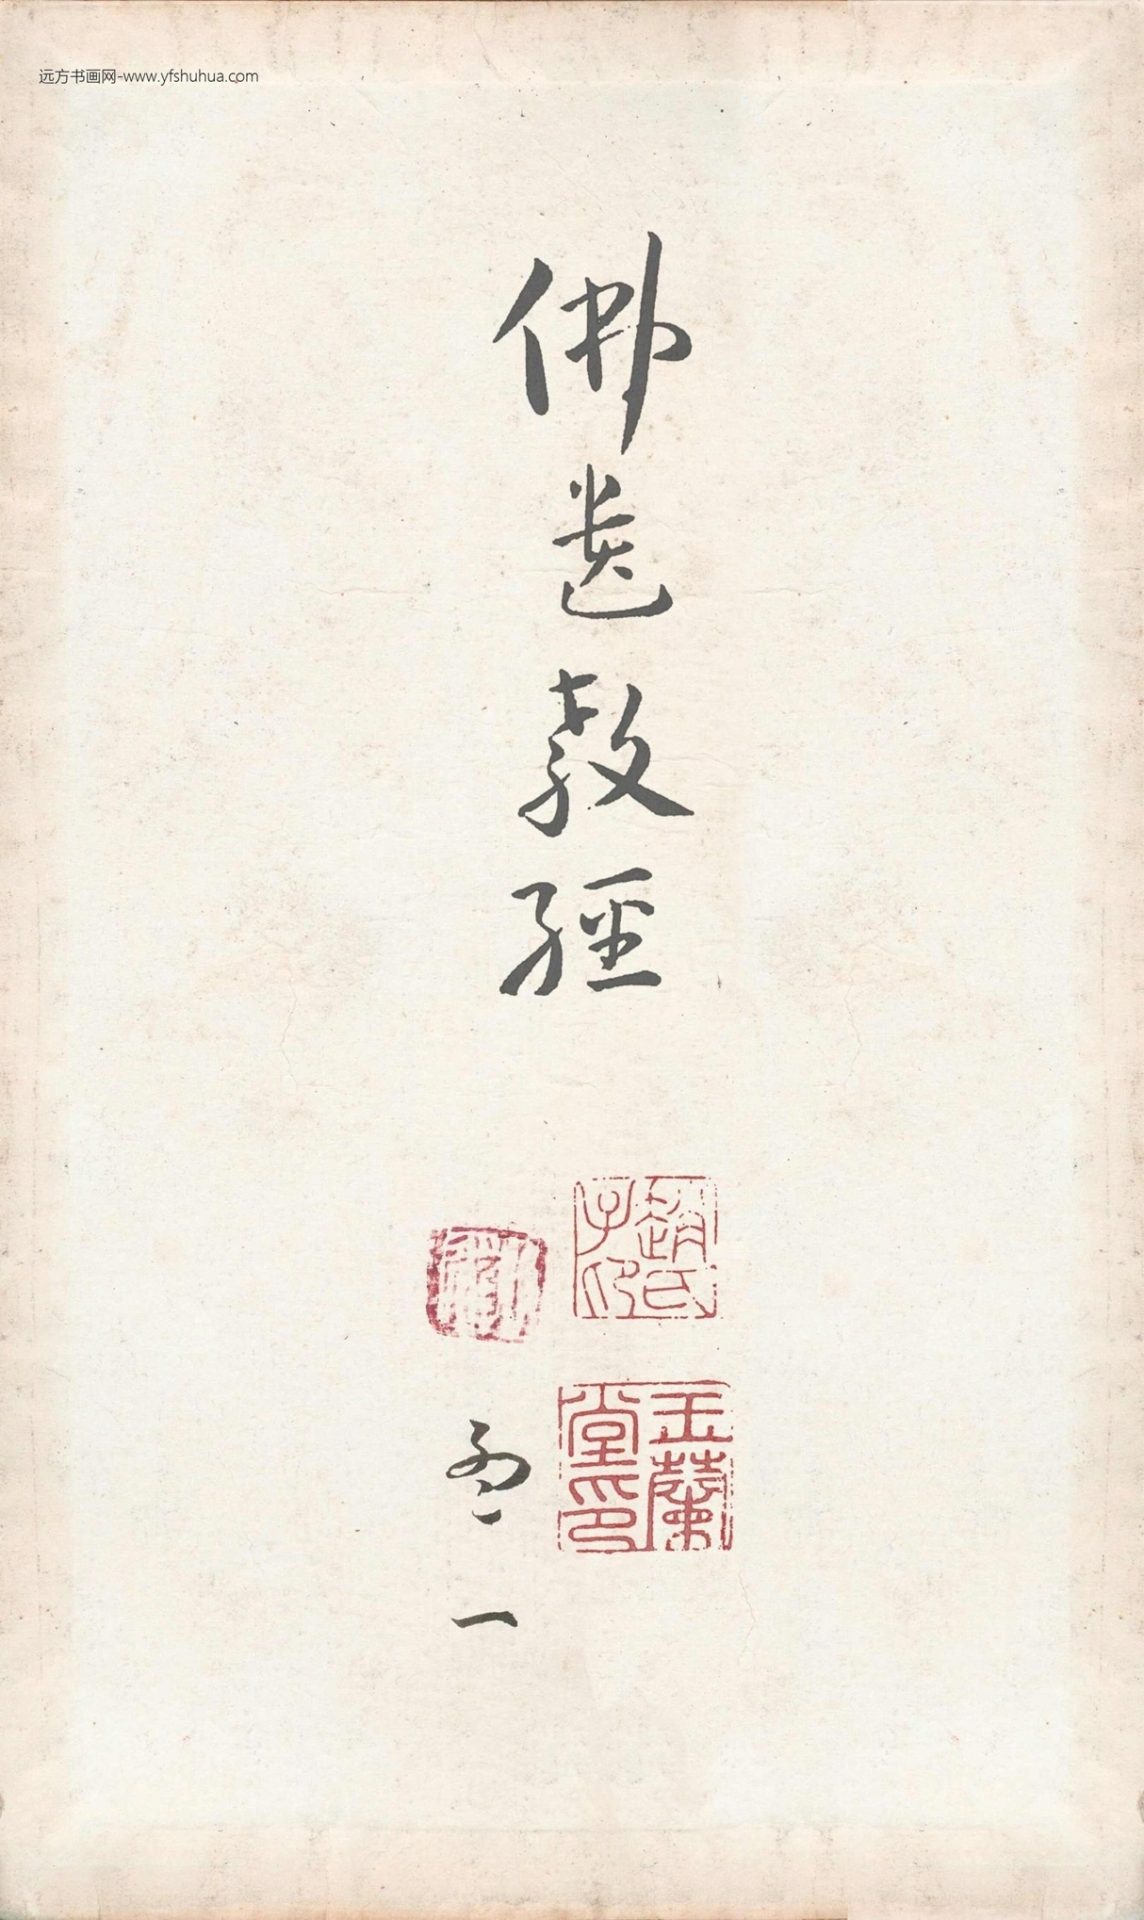 远方书画网-www.yfshuhua.com
佛遺教經
趙氏子印
玉蘭堂印
一